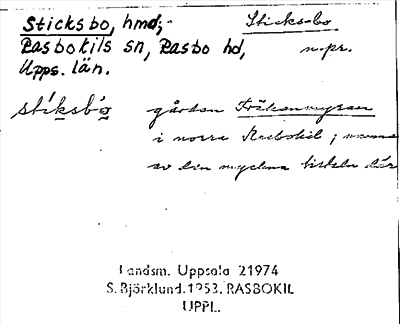 Sticksbo, hmd; Sticksbo
Rasbokils sn, Rasbo hd, n.pr.
Upps. län.
stíksbò gården Fräkenmyran
i norra Rasbokil;
av den myckna där
Landsm. Uppsala 21974
S. Björklund. 1953. RASBOKIL
UPPL.